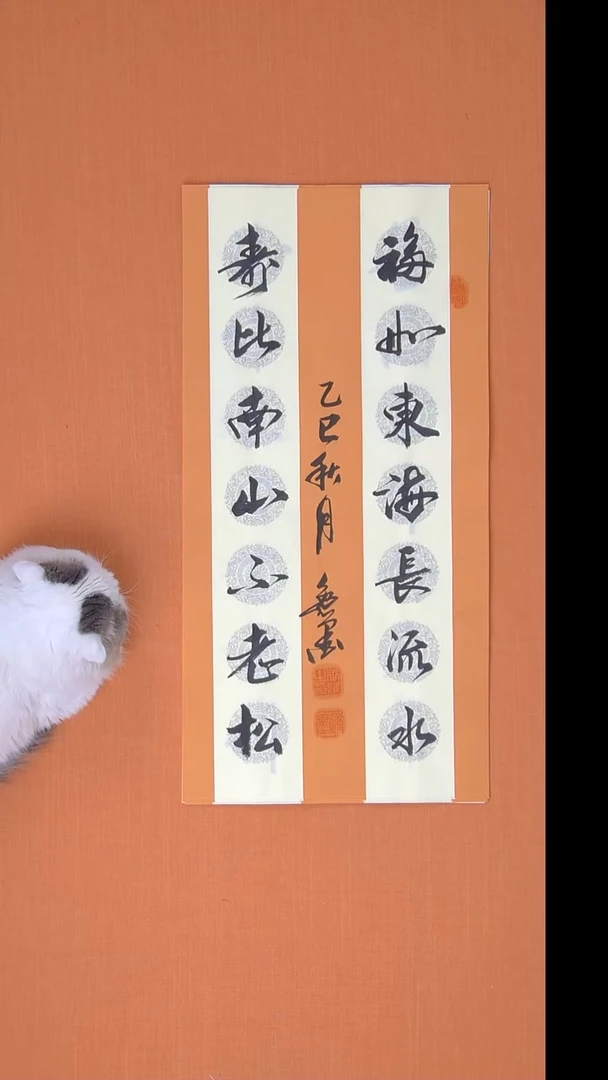 福如東海長流水
壽比南山不老松
乙巳秋月